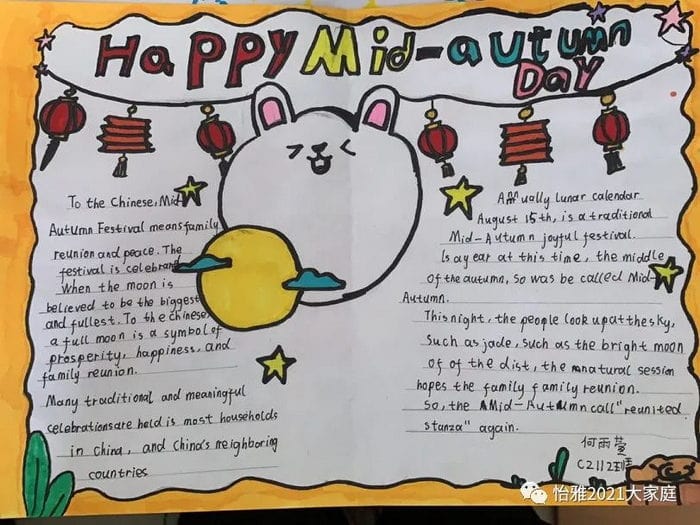 Happy Mid-autumn
Day
To the Chinese, Mid-
Autumn Festival means family
reunion and peace. The
festival is celebrand
When the moon is
believed to be the biggest
and fullest. To the Chinese,
a full moon is a symbol of
prosperity, happiness, and
family reunion.
Many traditional and meaningful
celebrations are held is most households
in china, and China's neighboring
countries
Annually lunar calendar
August 15th, is a traditional
Mid-Autumn joyful festival.
Is a year at this time, the middle
of the autumn, so was be called Mid-
Autumn.
This night, the people look up at the sky,
such as jade, such as the bright moon
of of the dist, the natural session
hopes the family family reunion.
So, the Mid-Autumn call "reunited
stanza" again.
何雨萱
C2112班
怡雅2021大家庭